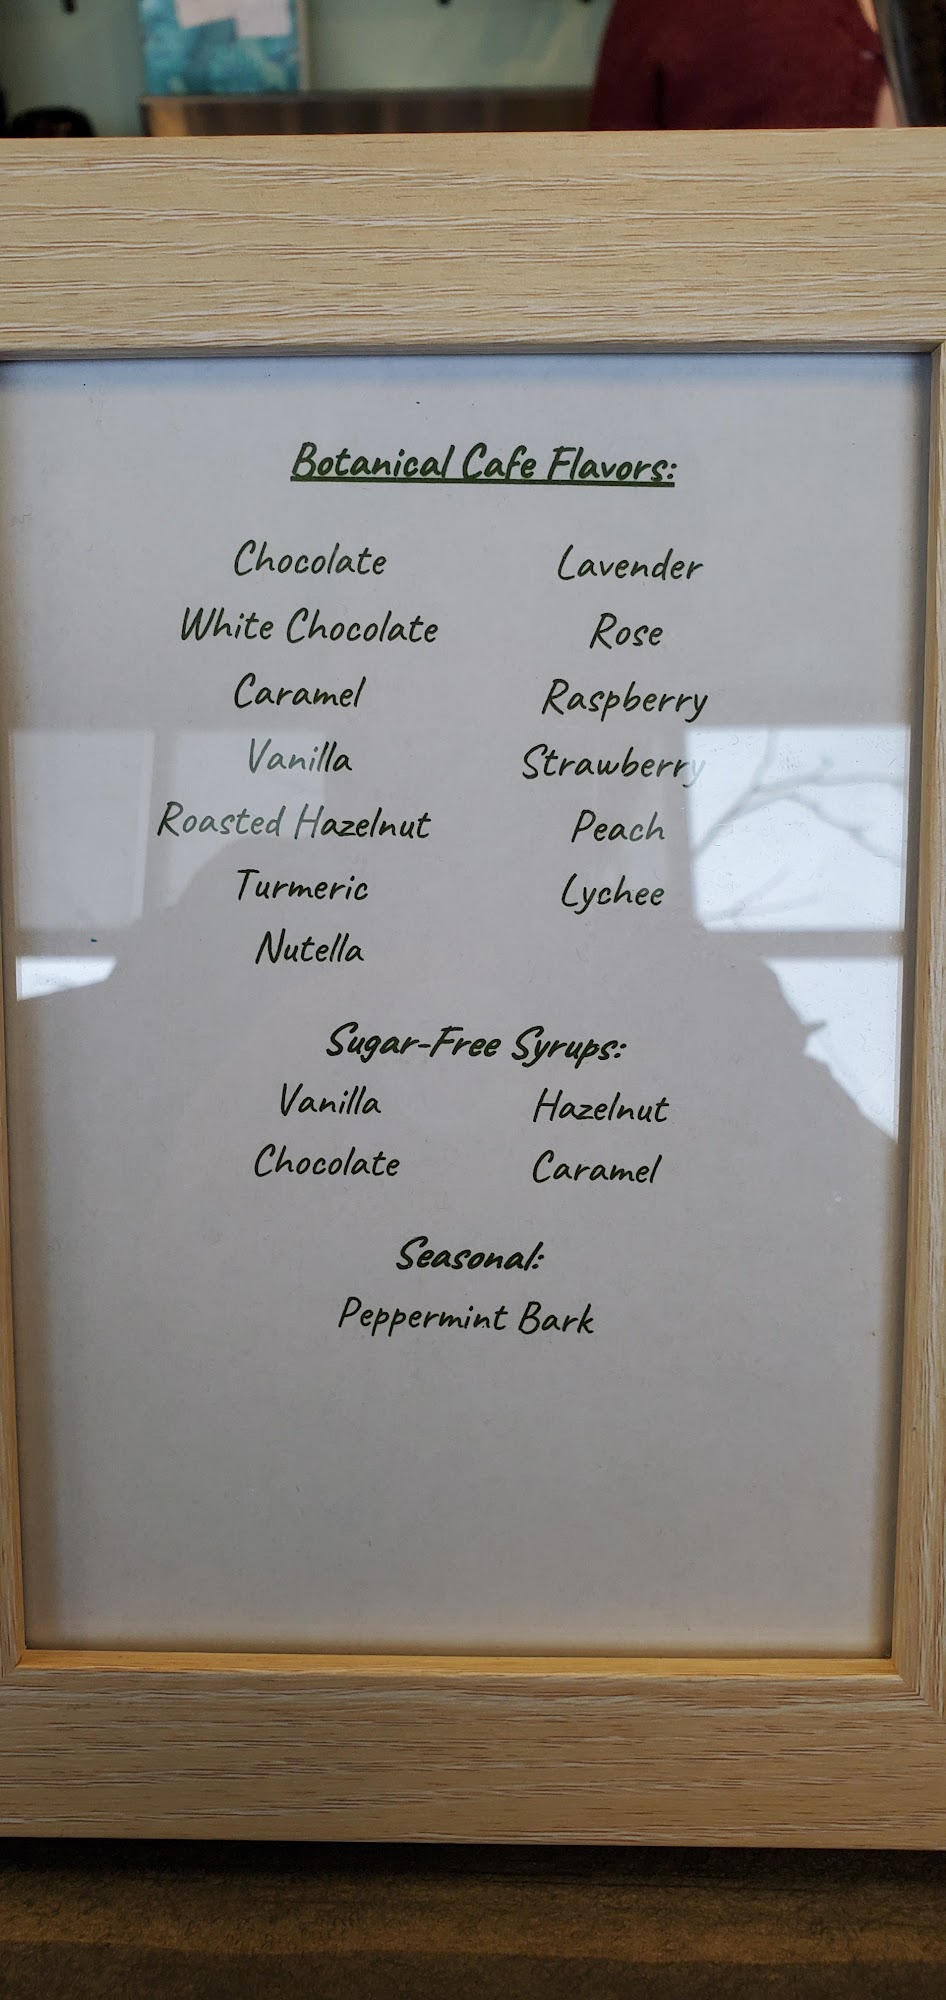 Botanical Cafe Flavors:
Chocolate
White Chocolate
Caramel
Vanilla
Roasted Hazelnut
Turmeric
Nutella
Lavender
Rose
Raspberry
Strawberry
Peach
Lychee
Sugar-Free Syrups:
Vanilla
Chocolate
Hazelnut
Caramel
Seasonal:
Peppermint Bark